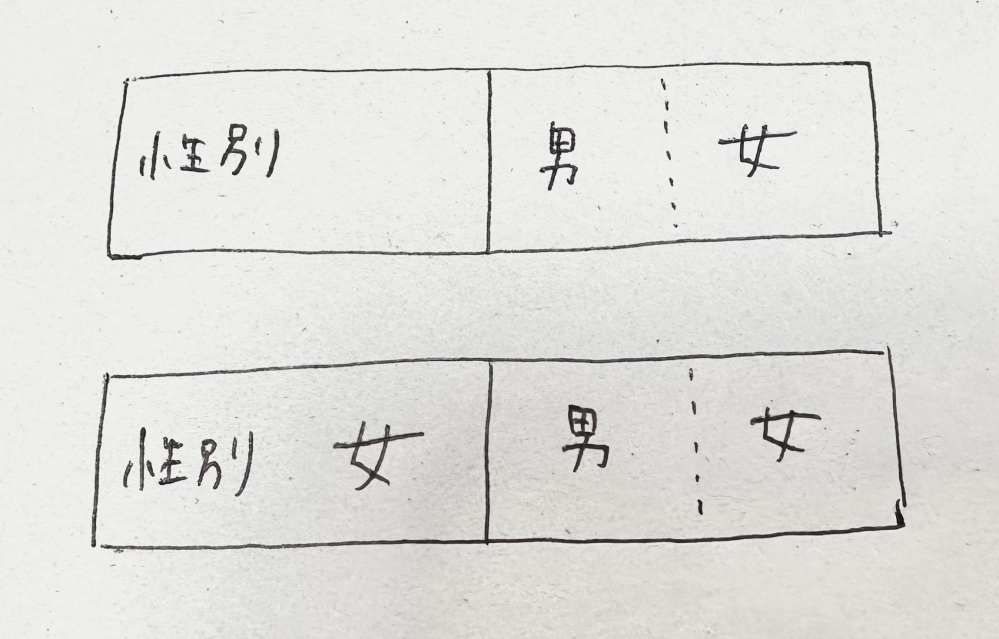 性別 男 女
性別 女 男 女